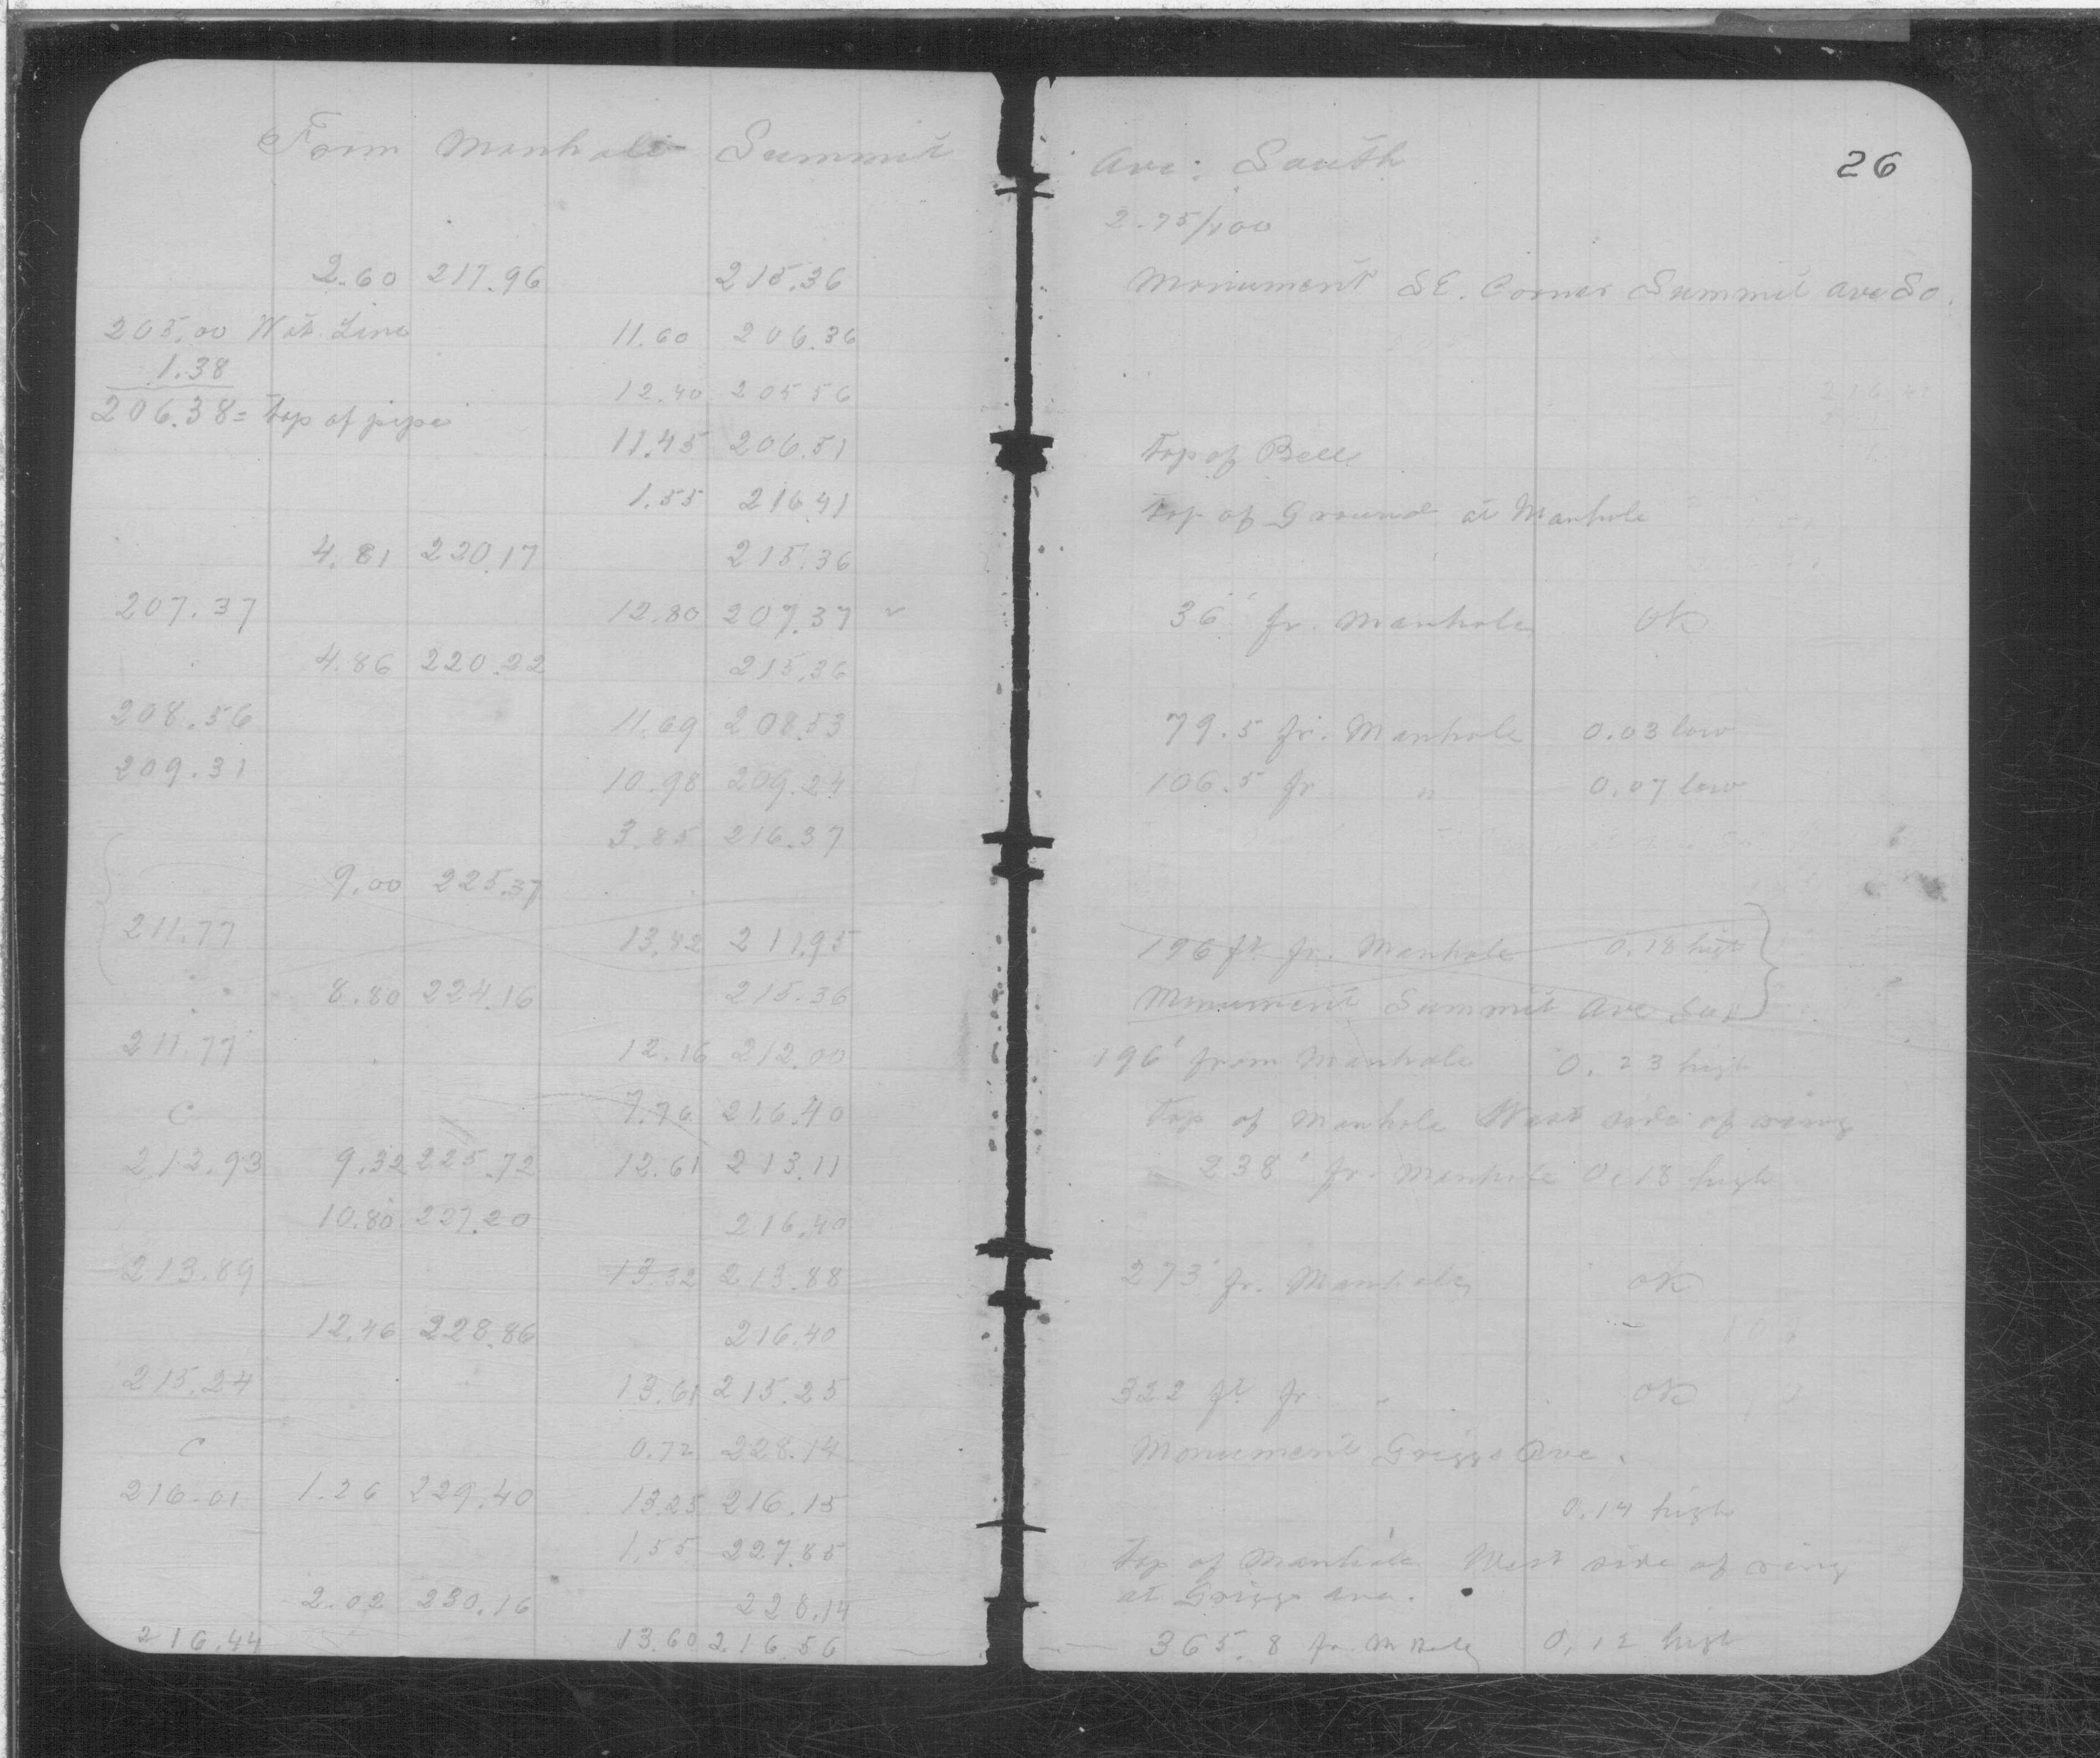 From Manhole Summit Ave. South 26
2.75/100
2.60 217.96 215.36 Monument S.E. Corner Summit Ave So.
205.00 Wat. Line 11.60 206.36
1.38 12.40 205.56
206.38 = top of pipe
11.45 206.51 Top of Bell
1.55 216.41 Top of Ground at Manhole
4.81 220.17 215.36
207.37 12.80 207.37 36' fr. Manhole OK
4.86 220.22 215.36
208.56 11.69 208.53 79.5 fr. Manhole 0.03 low
209.31 10.98 209.24 106.5 fr " 0.07 low
3.85 216.37
9.00 225.37
211.77 13.42 211.95 196 ft fr. Manhole 0.18 high
8.80 224.16 215.36 Monument Summit Ave So.
211.77 12.16 212.00 196' from Manhole 0.23 high
C 7.76 216.40 Top of Manhole West side of ring
212.93 9.32 225.72 12.61 213.11 238' fr. Manhole 0.18 high
10.80 227.20 216.40
213.89 13.32 213.88 273' fr. Manhole OK
12.46 228.86 216.40
215.24 13.61 215.25 322 ft fr " OK
C 0.72 228.14 Monument Griggs Ave.
216.01 1.26 229.40 13.25 216.15 0.14 high
1.55 227.85 Top of Manhole West side of ring
at Griggs Ave.
2.02 230.16 228.14
216.44 13.60 216.56 365.8 fr. M Hole 0.12 high